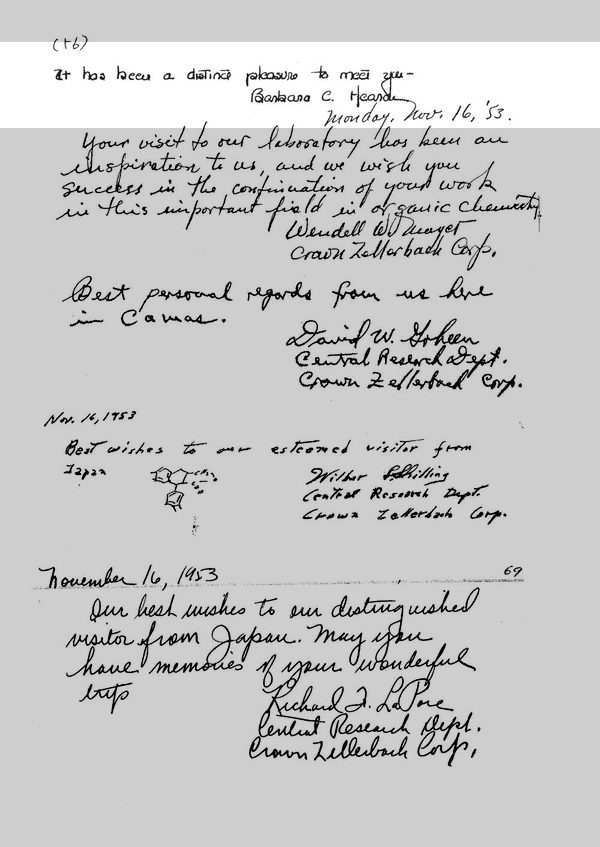 It has been a distinct pleasure to meet you—
Barbara C.
Monday, Nov. 16, '53.
Your visit to our laboratory has been an
inspiration to us, and we wish you
success in the continuation of your work
in this important field in organic chemistry.
Wendell W. Moyer
Crown Zellerbach Corp.
Best personal regards from us here
in Camas.
David W. Goheen
Central Research Dept.
Crown Zellerbach Corp.
Nov. 16, 1953
Best wishes to our esteemed visitor from
Japan
Wilbur Shilling
Central Research Dept.
Crown Zellerbach Corp.
November 16, 1953
69
Our best wishes to our distinguished
visitor from Japan. May you
have memories of your wonderful
trip
Richard F. LaPore
Central Research Dept.
Crown Zellerbach Corp.